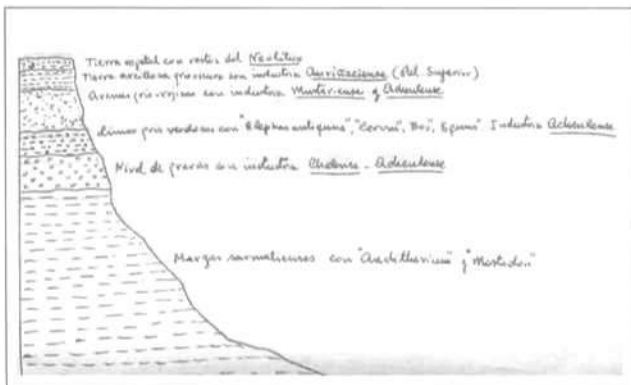 Tierra vegetal con restos del Neolítico
Tierra arcillosa gris oscura con industria Auriñaciense (Pal. Superior)
Arenas gris-rojizas con industria Musteriense y Acheulense
Limos gris verdosos con "Elephas antiquus", "Cervus", "Bos", "Equus". Industria Acheulense
Nivel de gravas con industria Chelense - Acheulense
Margas sarmatienses con "Anchitherium" y "Mastodon"